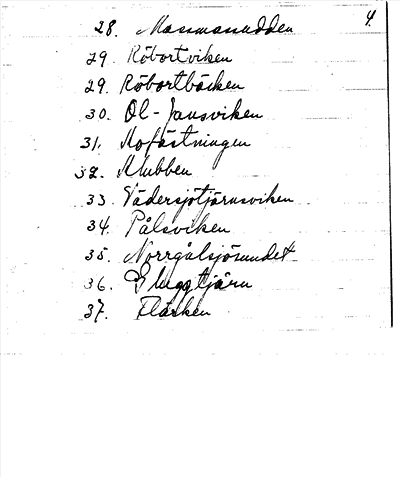 4.
28. Massmansudden
29. Röbortviken
29. Röbortbäcken
30. Ol-Jansviken
31. Mofästningen
32. Klubben
33. Vädersjötjärnsviken
34. Pålsviken
35. Norrgålsjösundet
36. Gluggtjärn
37. Flärken